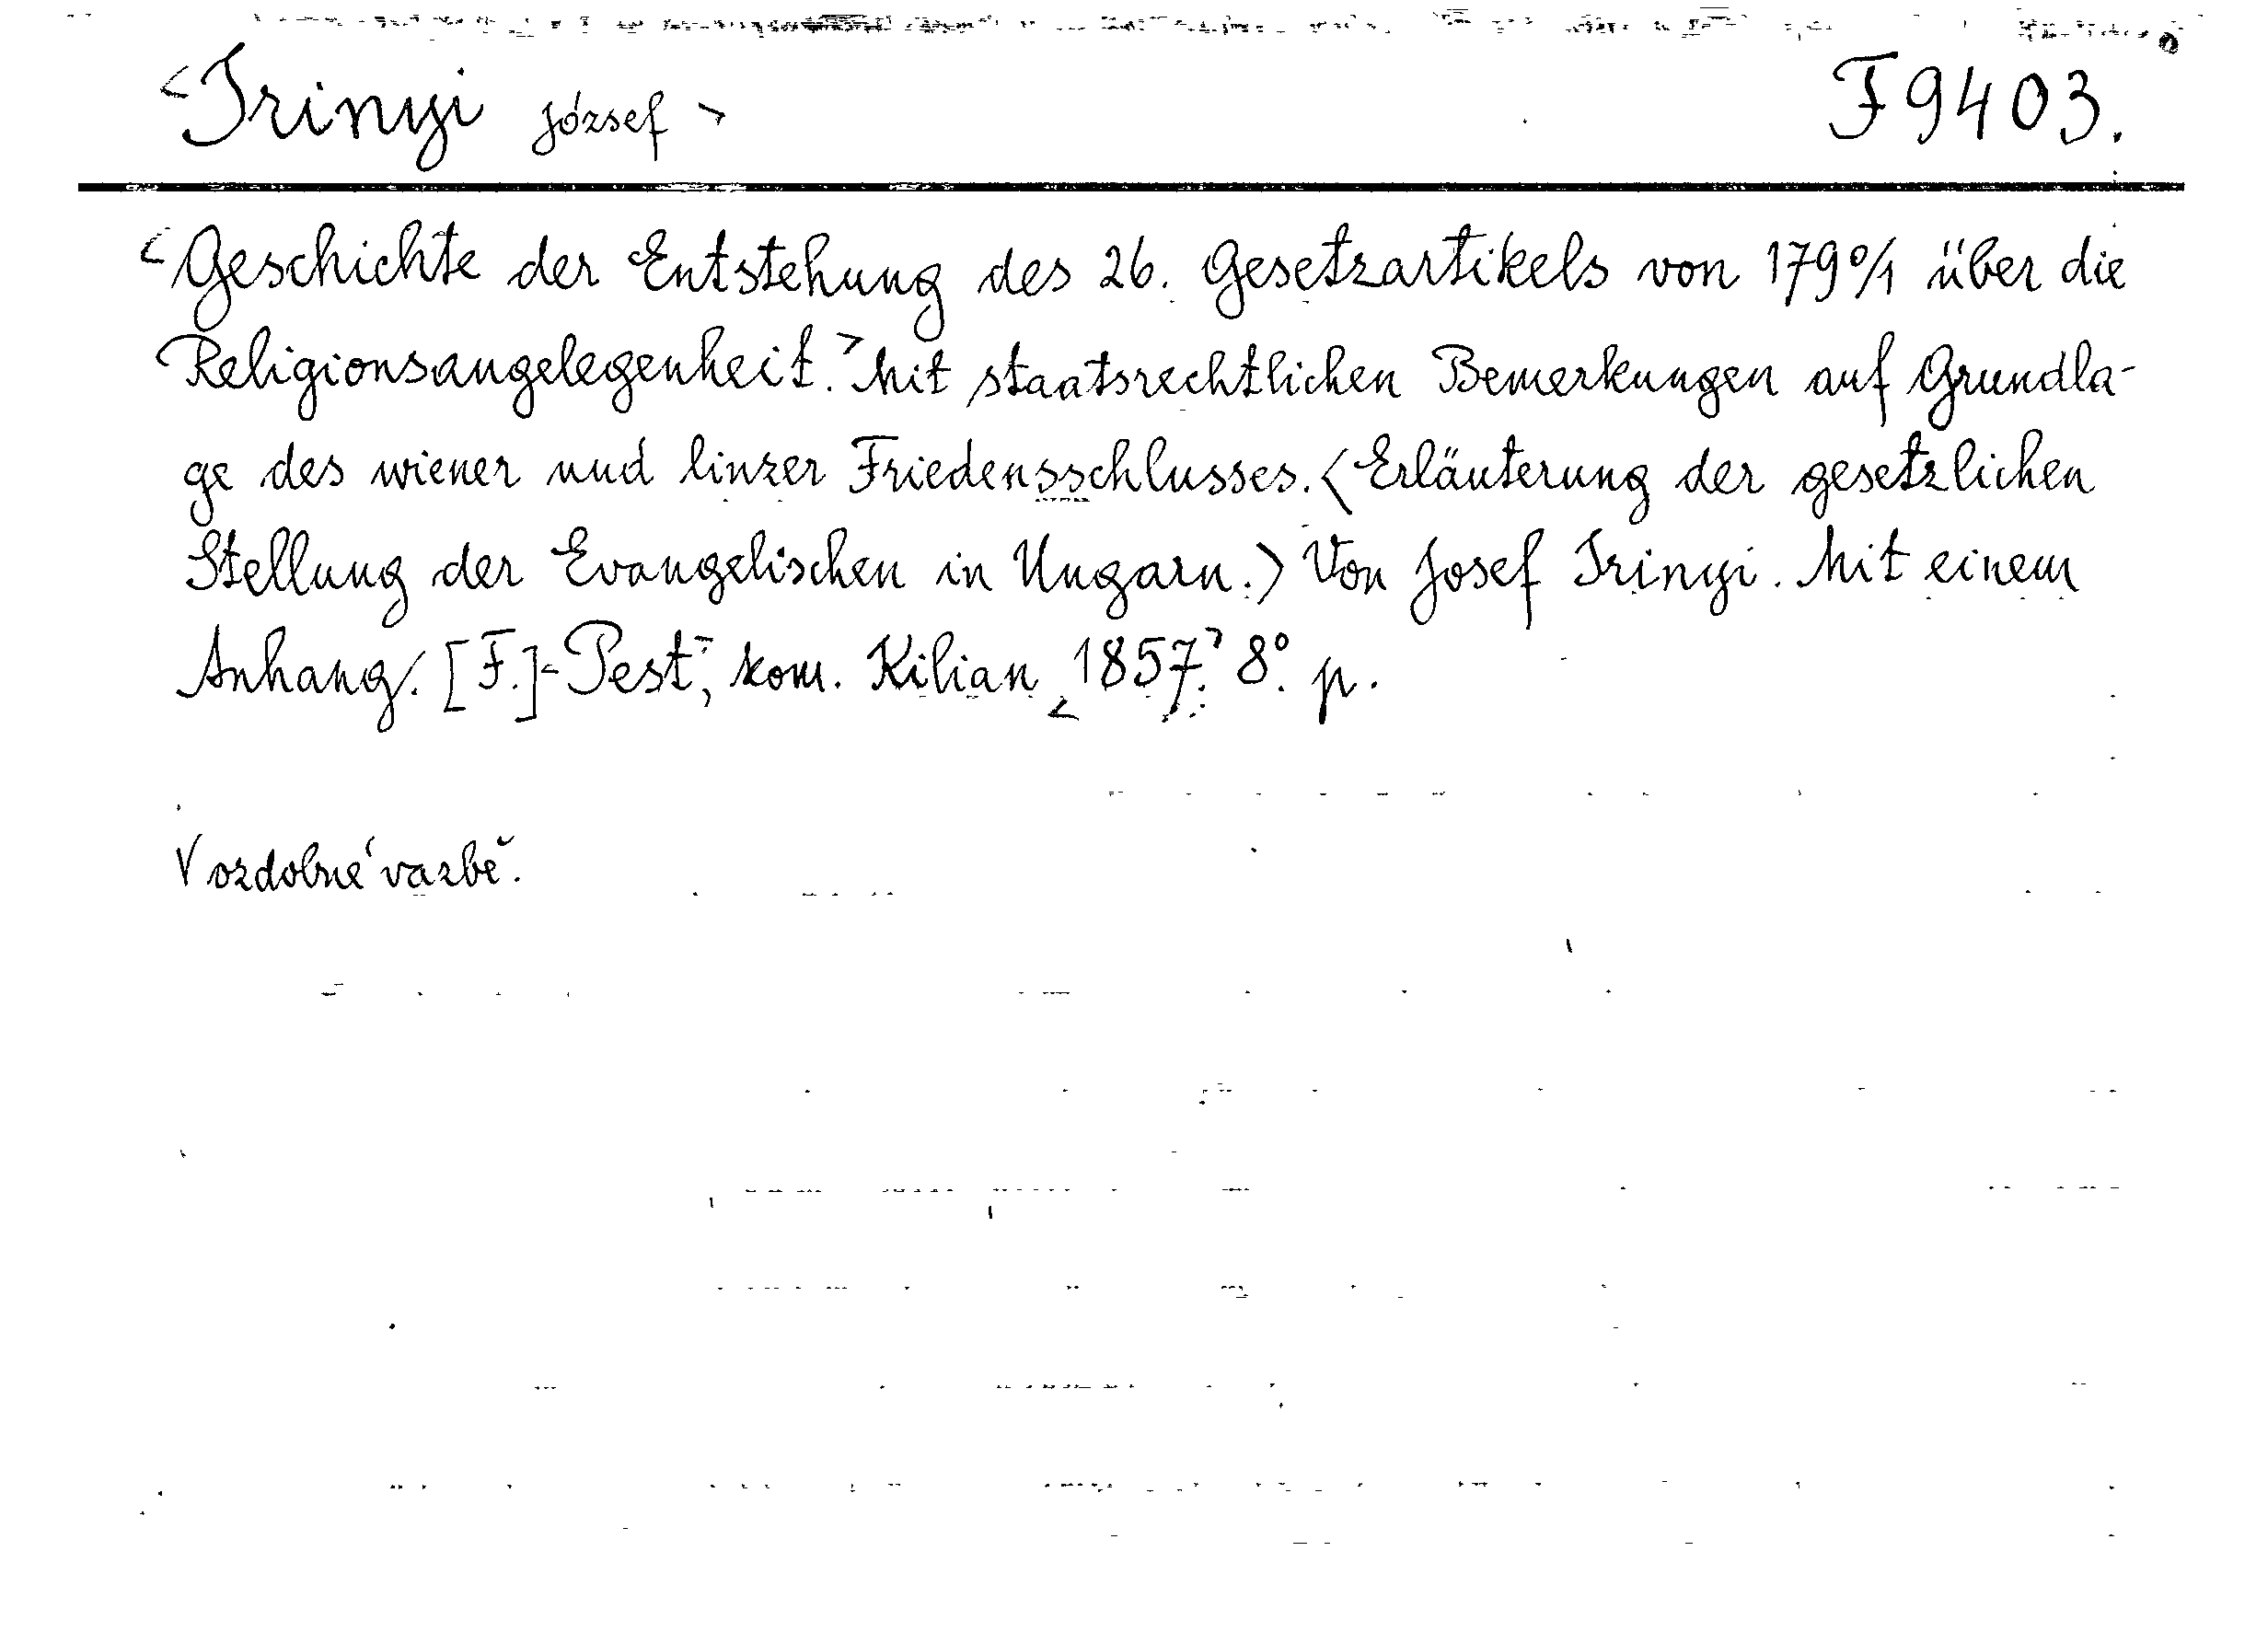 <Irinyi József> F9403.
<Geschichte der Entstehung des 26. Gesetzartikels von 1790/1 über die
Religionsangelegenheit.> Mit staatsrechtlichen Bemerkungen auf Grundla-
ge des wiener und linzer Friedensschlusses. <Erläuterung der gesetzlichen
Stellung der Evangelischen in Ungarn.> Von Josef Irinyi. Mit einem
Anhang. [F.] <Pest>, kom. Kilian <1857.> 8°. p.
V ozdobné vazbě.